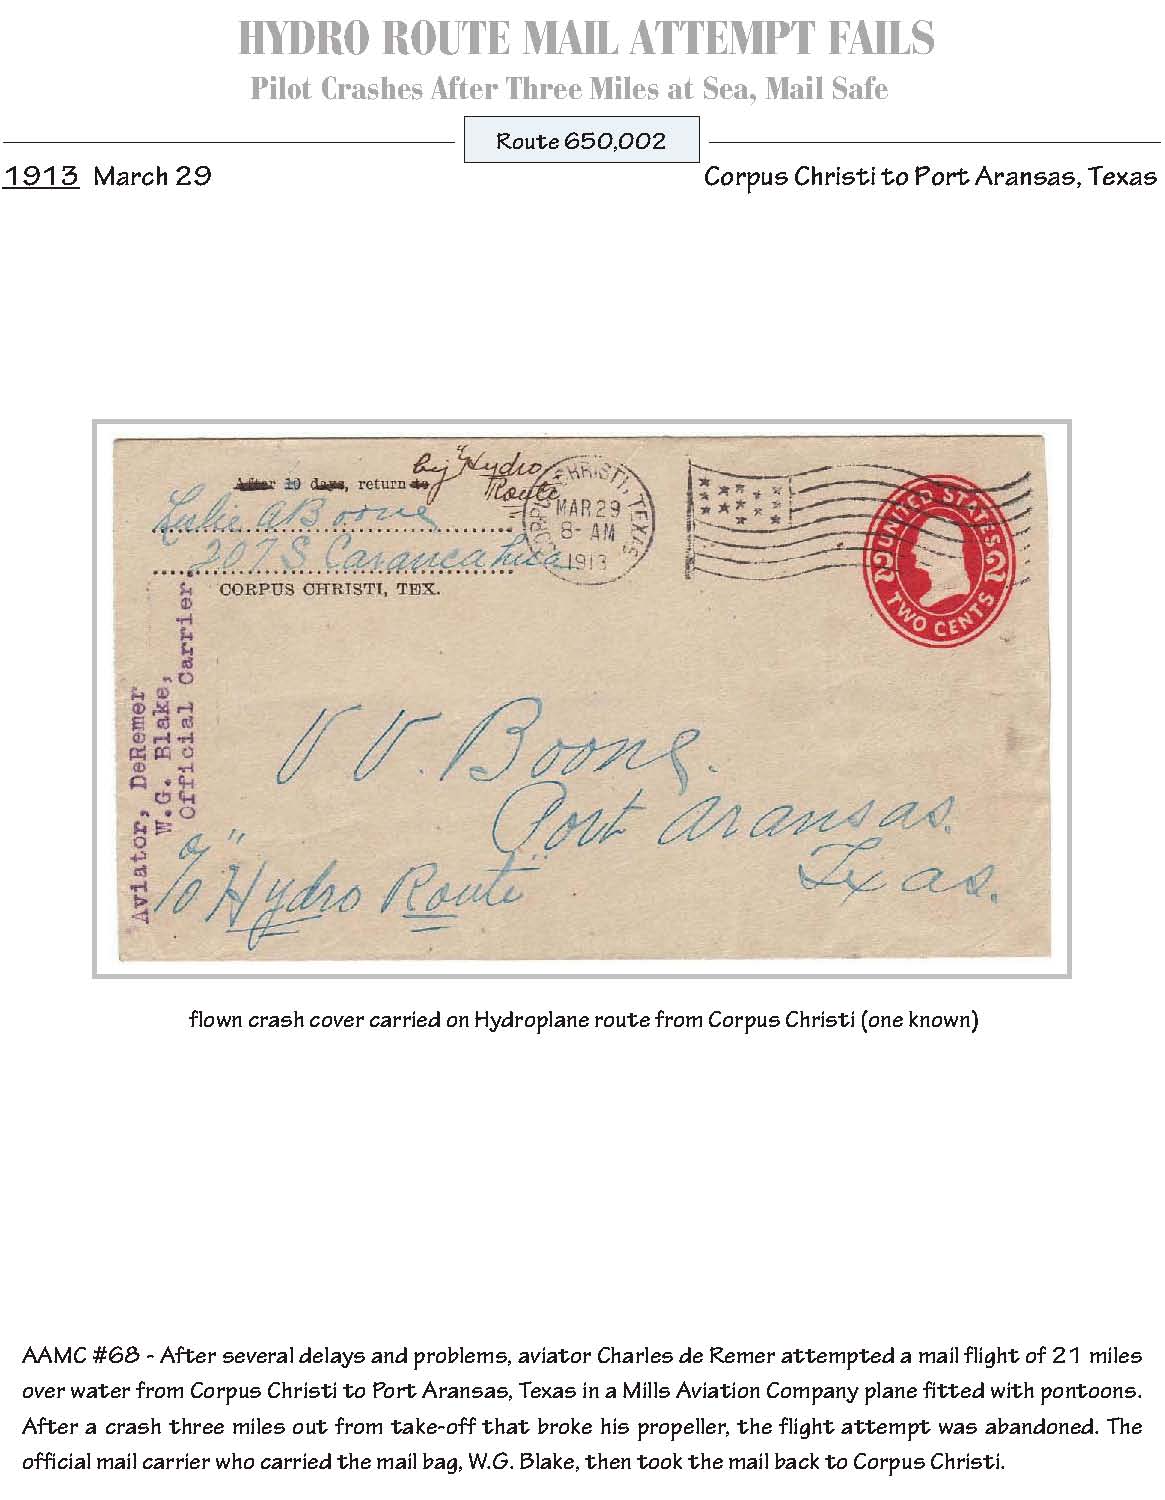 HYDRO ROUTE MAIL ATTEMPT FAILS
Pilot Crashes After Three Miles at Sea, Mail Safe
Route 650,002
1913 March 29
Corpus Christi to Port Aransas, Texas
by "Hydro
Route"
After 10 days, return to
Leslie A Boone
207 S Carancahua
CORPUS CHRISTI, TEX.
CORPUS CHRISTI, TEXAS
MAR 29
8- AM
1913
UNITED STATES
2 2
TWO CENTS
Aviator, DeRemer
W.G. Blake,
Official Carrier.
V V. Boone.
Port Aransas.
Texas.
"Hydro Route"
flown crash cover carried on Hydroplane route from Corpus Christi (one known)
AAMC #68 - After several delays and problems, aviator Charles de Remer attempted a mail flight of 21 miles
over water from Corpus Christi to Port Aransas, Texas in a Mills Aviation Company plane fitted with pontoons.
After a crash three miles out from take-off that broke his propeller, the flight attempt was abandoned. The
official mail carrier who carried the mail bag, W.G. Blake, then took the mail back to Corpus Christi.